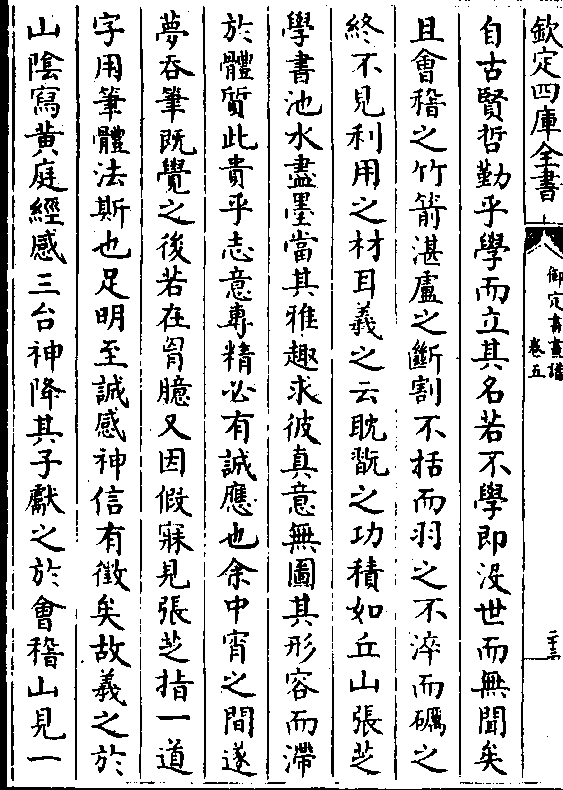 欽定四庫全書
御定書畫譜
卷五
二十三
自古賢哲勤乎學而立其名若不學即沒世而無聞矣
且會稽之竹箭湛盧之斷割不括而羽之不淬而礪之
終不見利用之材耳羲之云耽翫之功積如丘山張芝
學書池水盡墨當其雅趣求彼真意無圖其形容而滯
於體質此貴乎志意專精必有誠應也余中宵之間遂
夢吞筆既覺之後若在胷臆又因假寐見張芝指一道
字用筆體法斯也足明至誠感神信有徵矣故羲之於
山陰寫黃庭經感三台神降其子獻之於會稽山見一